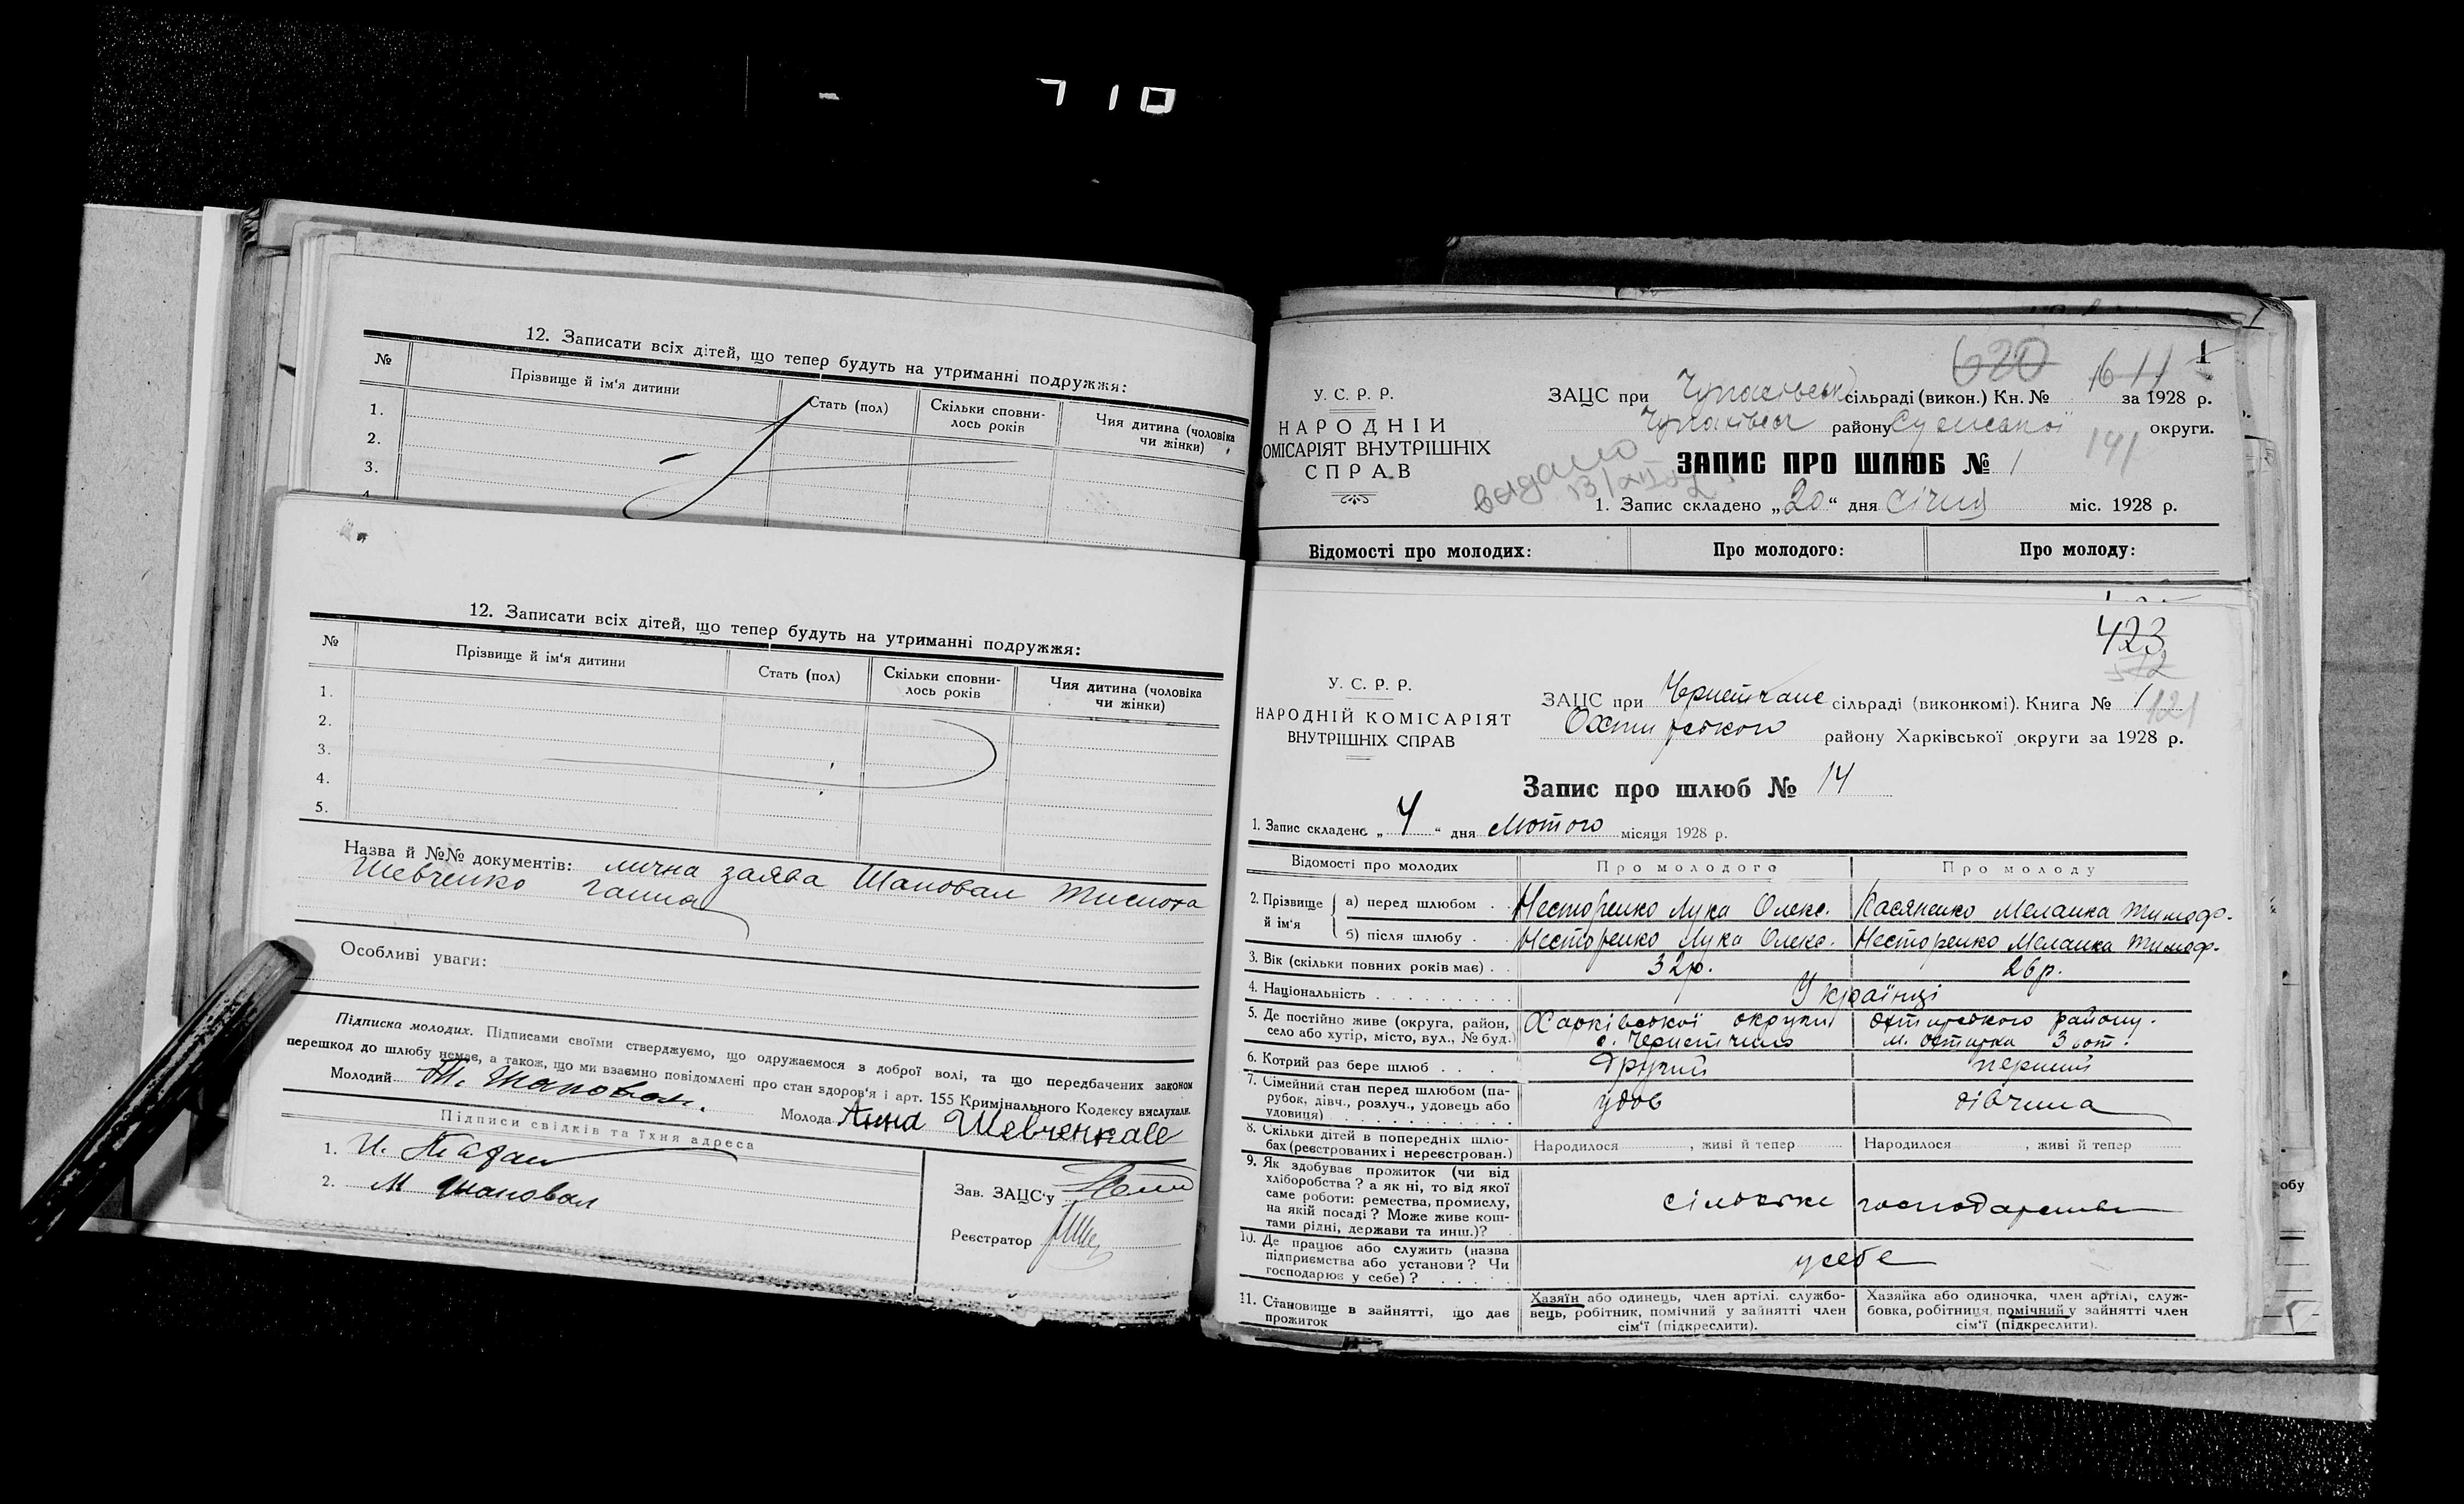 710
12. Записати всіх дітей, що тепер будуть на утриманні подружжя:
№ Прізвище й ім'я дитини Стать (пол) Скільки сповнилось років Чия дитина (чоловіка чи жінки)
1.
2.
3.
4.
12. Записати всіх дітей, що тепер будуть на утриманні подружжя:
№ Прізвище й ім'я дитини Стать (пол) Скільки сповнилось років Чия дитина (чоловіка чи жінки)
1.
2.
3.
4.
5.
Назва й №№ документів: лична заява Шаповал
Шевченко ганна
Особливі уваги:
Підписка молодих. Підписами своїми стверджуємо, що одружаємося з доброї волі, та що передбачених законом
перешкод до шлюбу немає, а також, що ми взаємно повідомлені про стан здоров'я і арт. 155 Кримінального Кодексу вислухали.
Молодий Т. Шаповал. Молода Анна Шевченкова
Підписи свідків та їхня адреса
1. И.
2. М Шаповал
Зав. ЗАЦС'у
Реєстратор
620 611 1
У. С. Р. Р.
НАРОДНІЙ
КОМІСАРІЯТ ВНУТРІШНІХ
СПРАВ
ЗАЦС при Чупахівськ сільраді (викон.) Кн. № за 1928 р.
Чупахівськ району Сумської округи.
141
видано
ЗАПИС ПРО ШЛЮБ № 1
1. Запис складено „20“ дня січня міс. 1928 р.
Відомості про молодих: Про молодого: Про молоду:
423
572
У. С. Р. Р.
НАРОДНІЙ КОМІСАРІЯТ
ВНУТРІШНІХ СПРАВ
ЗАЦС при сільраді (виконкомі). Книга № 1
121
Охтирського району Харківської округи за 1928 р.
Запис про шлюб № 14
1. Запис складено „4“ дня Лютого місяця 1928 р.
Відомості про молодих Про молодого Про молоду
2. Прізвище й ім'я
а) перед шлюбом . . Несторенко Лука Олекс. Касяненко Меланка Тимоф.
б) після шлюбу . . Несторенко Лука Олекс. Несторенко Меланка Тимоф.
3. Вік (скільки повних років має) . . 32р. 26р.
4. Національність . . . . . . . . . Українці
5. Де постійно живе (округа, район, Харківської округи Охтирського району.
село або хутір, місто, вул., № буд.) с. м. Охтирка 3 сот.
6. Котрий раз бере шлюб . . . Другий перший
7. Сімейний стан перед шлюбом (парубок, дівч., розлуч., удовець або
удовиця) . . . . . . . . . . . удов дівчина
8. Скільки дітей в попередніх шлюбах (реєстрованих і нереєстрован.) Народилося , живі й тепер Народилося , живі й тепер
9. Як здобуває прожиток (чи від
хліборобства? а як ні, то від якої
саме роботи: ремества, промислу,
на якій посаді? Може живе коштами рідні, держави та инш.)?
сільське господарство
10. Де працює або служить (назва
підприємства або установи? Чи
господарює у себе)? . . . . .
у себе
11. Становище в зайнятті, що дає
прожиток
Хазяїн або одинець, член артілі, службовець, робітник, помічний у зайнятті член
сім'ї (підкреслити).
Хазяйка або одиночка, член артілі, службовка, робітниця, помічний у зайнятті член
сім'ї (підкреслити).
обу